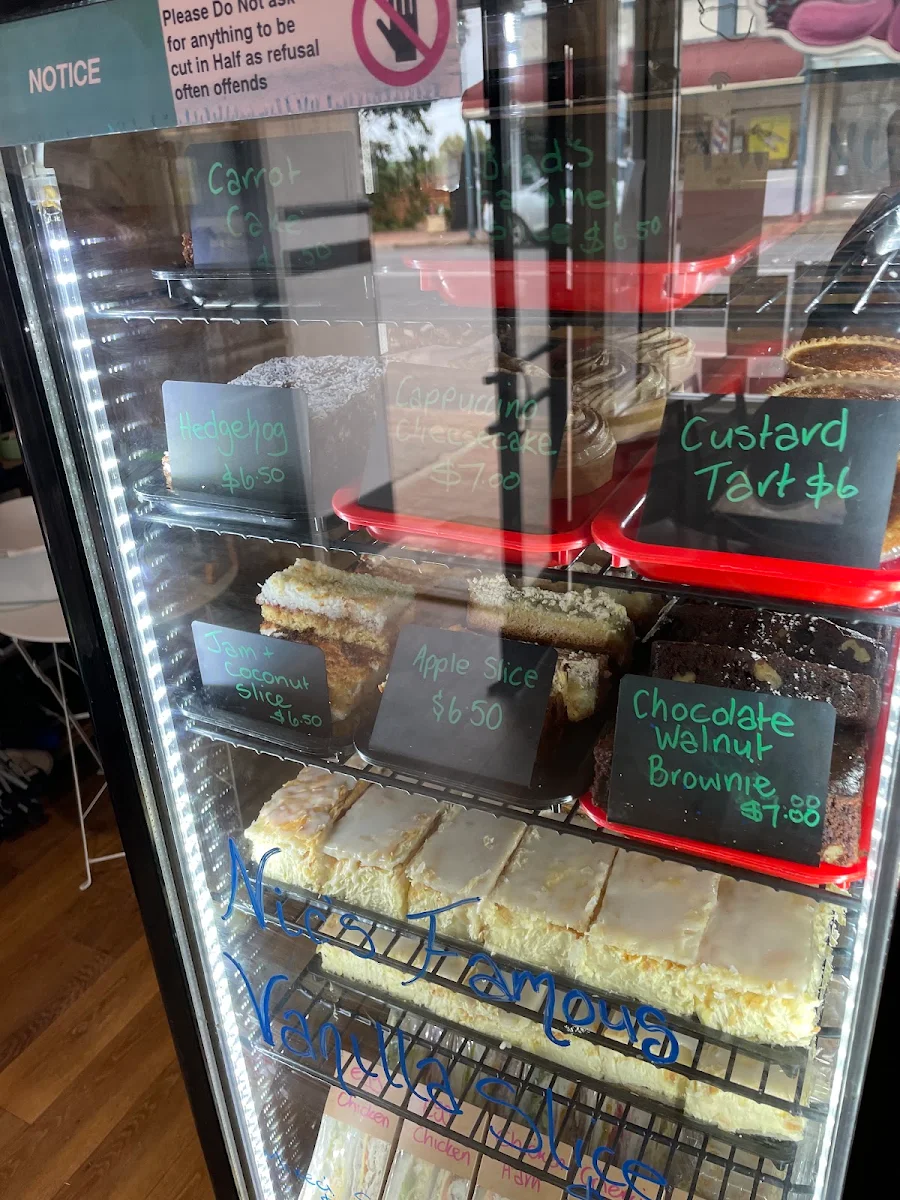 NOTICE
Please Do Not ask
for anything to be
cut in Half as refusal
often offends
Carrot
Cake
50
$6.50
Hedgehog
$6.50
Cappuccino
Cheesecake
$7.00
Custard
Tart $6
Jam +
Coconut
Slice
$6.50
Apple Slice
$6.50
Chocolate
Walnut
Brownie
$7.00
Nic's Famous
Vanilla Slice
Chicken
Chicken
Ham